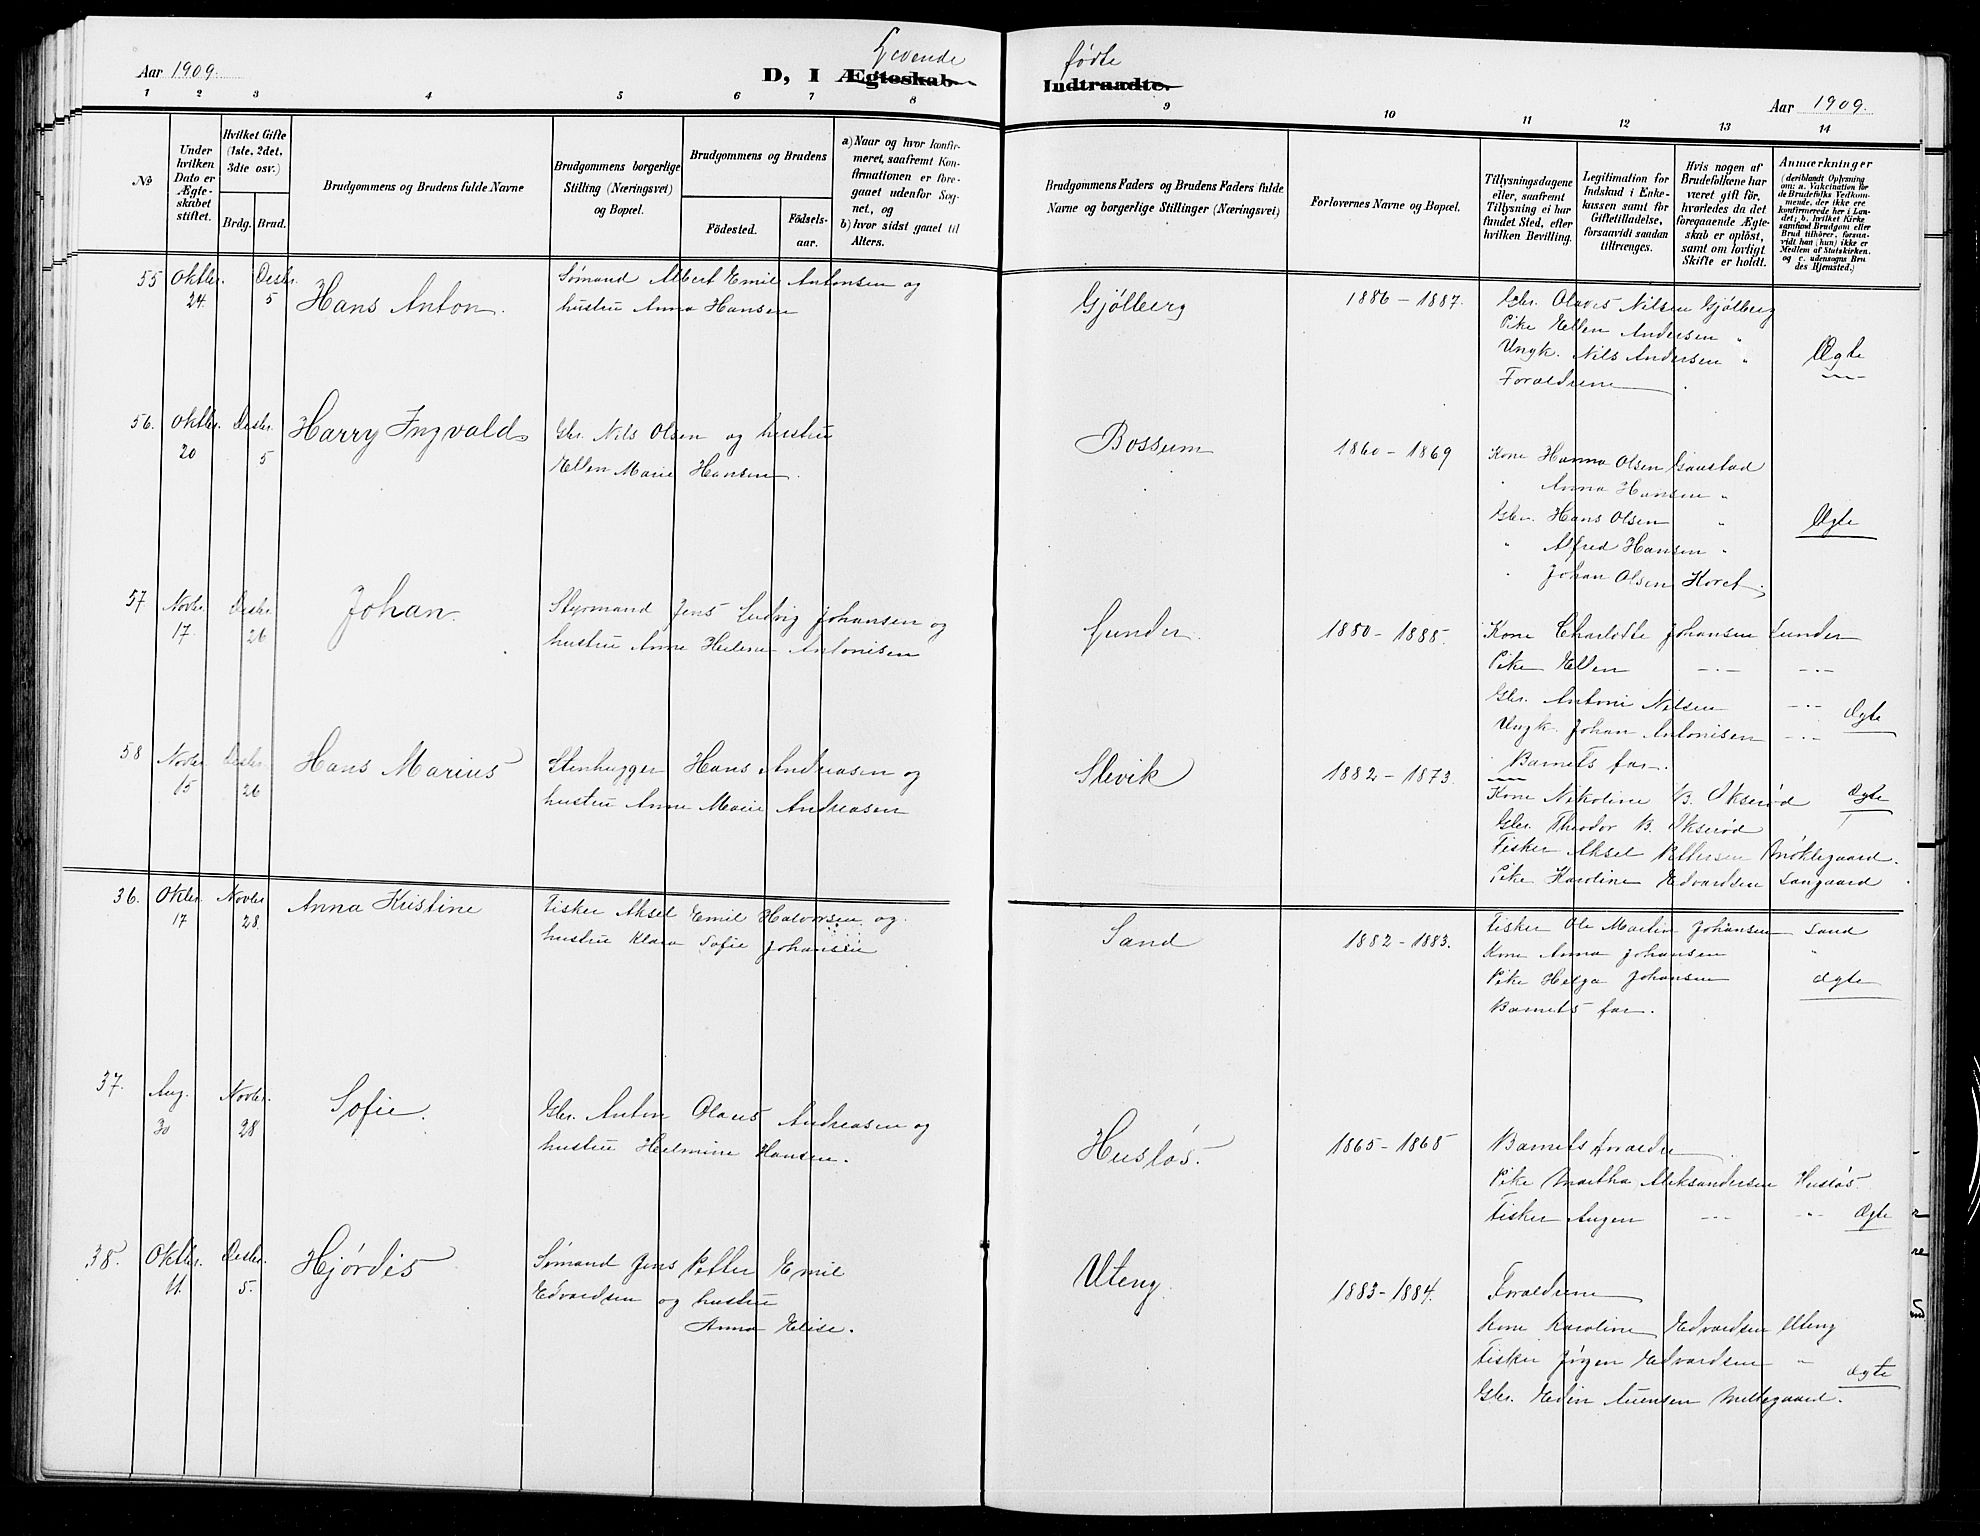 Levende fødte
Aar 1909. D, I Ægteskab Indtraadte. Aar 1909.
1 2 3 4 5 6 7 8 9 10 11 12 13 14
No
Under
hvilken
Dato er
Ægte-
skabet
stiftet.
Hvilket Gifte
(1ste, 2det,
3die osv.)
Brdg. Brud.
Brudgommens og Brudens fulde Navne
Brudgommens borgerlige
Stilling (Næringsvei)
og Bopæl.
Brudgommens og Brudens
Fødested.
Fødsels-
aar.
a) Naar og hvor konfir-
meret, saafremt Kon-
firmationen er fore-
gaaet udenfor Sog-
net, og
b) hvor sidst gaaet til
Alters.
Brudgommens Faders og Brudens Faders fulde
Navne og borgerlige Stillinger (Næringsvei)
Forlovernes Navne og Bopæl.
Tillysningsdagene
eller, saafremt
Tillysning ei har
fundet Sted, efter
hvilken Bevilling.
Legitimation for
Indskud i Enke-
kassen samt for
Giftetilladelse,
forsaavidt saadan
tiltrænges.
Hvis nogen af
Brudefolkene har
været gift før,
hvorledes da det
foregaaende Ægte-
skab er opløst,
samt om lovligt
Skifte er holdt.
Anmærkninger
(deriblandt Oplysning
om: a. Vakcination for
de Brudefolks Vedkom-
mende, der ikke ere
konfirmerede her i Lan-
det; b. hvilket Kirke
samfund Brudgom eller
Brud tilhører, forsaa-
vidt han (hun) ikke er
Medlem af Statskirken.
og c. udensogns Bru
des Hjemsted.)
55 Oktbr. 24. Desbr. 5 Hans Anton.
Sømand Albert Emil Antonsen og
hustru Anna Hansen
Gjølberg 1886 - 1887.
Gbr. Olaves Nilsen Gjølberg
Pike Ellen Andersen "
Ungk. Nils Andersen "
Forældrene
Ægte
56. Oktbr. 20 Desbr. 5 Harry Ingvald
Gbr. Nils Olsen og hustru
Ellen Marie Hansen.
Bossum 1860 - 1869
Kone Hanna Olsen Gaustad
" Anna Hansen "
Gbr. Hans Olsen "
" Alfred Hansen "
" Johan Olsen Koret.
Ægte
57 Novbr. 17. Desbr. 26 Johan.
Styrmand Jens Ludvig Johansen og
hustru Anne Helene Antonisen
Lunder. 1880 - 1885.
Kone Charlotte Johansen Lunder
Pike Ellen -"- -"-
Gbr. Antoni Nilsen -"-
Ungk. Johan Antonisen -"-
Barnets far.
Ægte
58 Novbr. 15 Desbr. 26 Hans Marius
Stenhugger Hans Andreasen og
hustru Anne Marie Andreasen
Slevik 1882 - 1873.
Kone Nikoline B. Okserød
Gbr. Theodor B. Okserød
Fisker Aksel Pettersen
Pike Karoline Edvardsen Langaard
Ægte
36. Oktbr. 17 Novbr. 28. Anna Kristine
Fisker Aksel Emil Halvorsen og
hustru Klara Sofie Johansen
Sand 1882 - 1883.
Fisker Ole Martin Johansen Sand
Kone Anna Johansen "
Pike Helga Johansen
Barnets far.
Ægte
37. Aug. 30 Novbr. 28 Sofie.
Gbr. Anton Olaus Andreasen og
hustru Helmine Hansen.
Husløs. 1865 - 1868
Barnets forældre
Pike Martha Aleksandersen Husløs
Fisker Augen -"- "
Ægte
38. Oktbr. 11. Desbr. 5. Hjørdis
Sømand Jens Petter Emil
Edvardsen og hustru
Anna Elise.
Uteng. 1883 - 1884.
Forældrene
Kone Karoline Edvardsen Uteng
Fisker Jørgen Edvardsen "
Gbr. Edin
Ægte